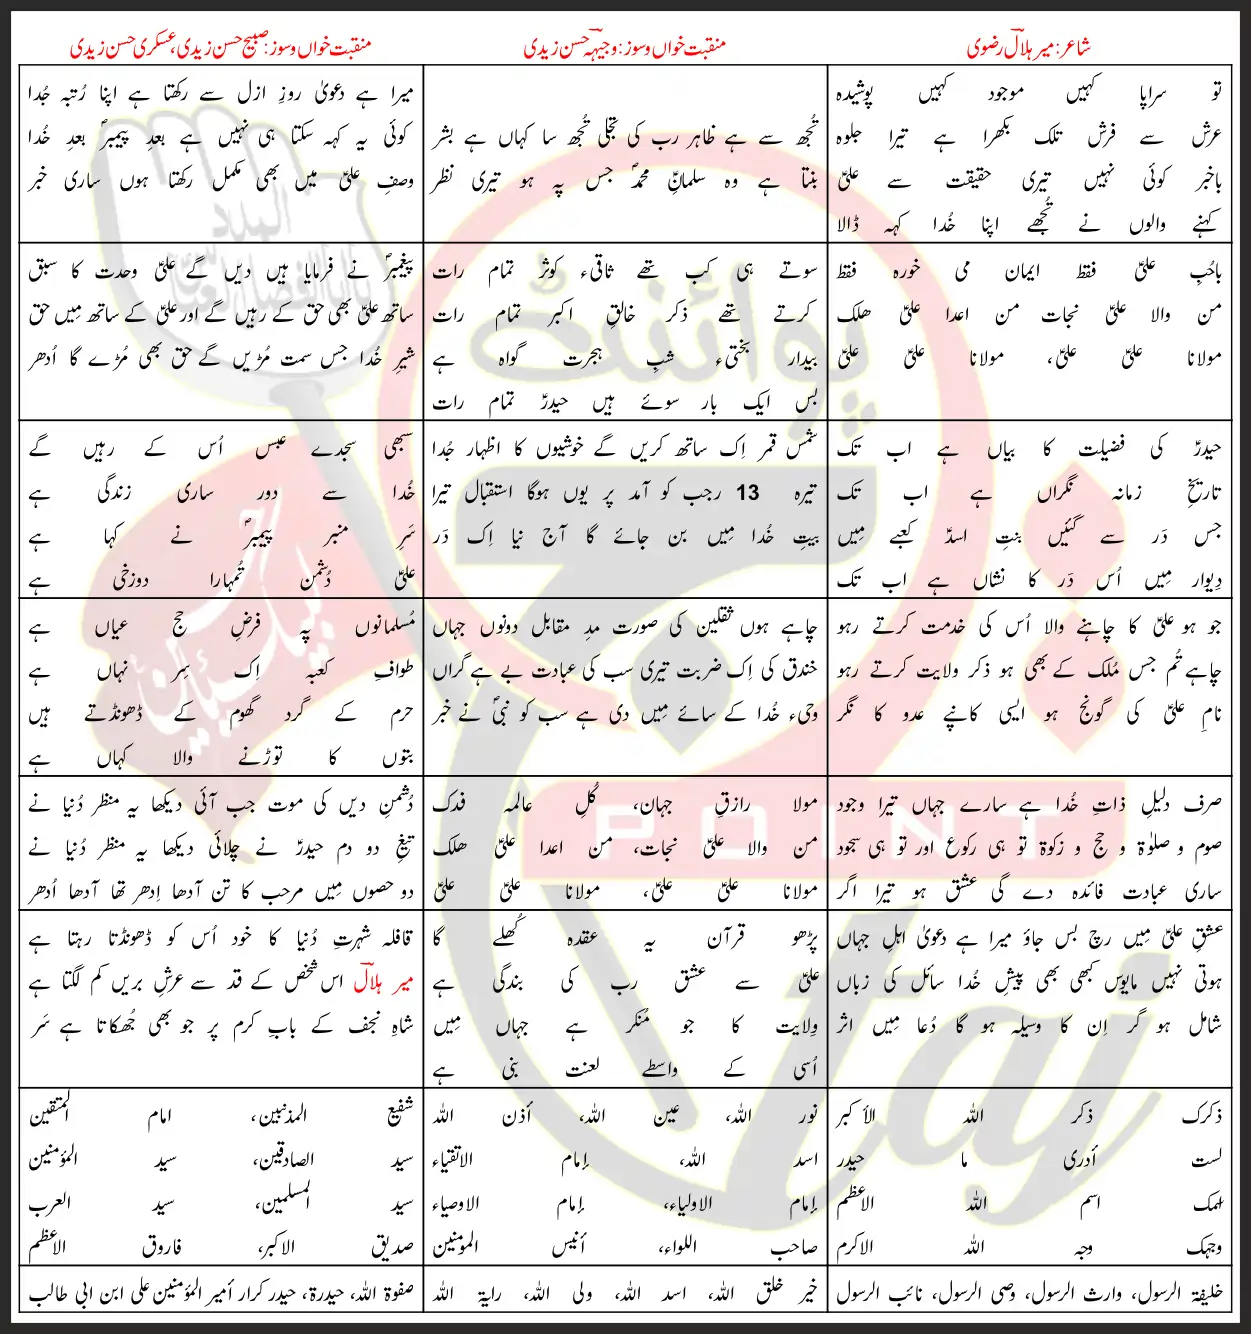 شاعر: میر ہلالؔ رضوی
منقبت خواں و سوز: وجیہہؔ حسن زیدی
منقبت خواں و سوز: صبیح حسن زیدی، عسکری حسن زیدی
تو سراپا کہیں موجود کہیں پوشیدہ
عرش سے فرش تلک بکھرا ہے تیرا جلوہ
باخبر کوئی نہیں تیری حقیقت سے علیؑ
کہنے والوں نے تُجھے اپنا خُدا کہہ ڈالا
تُجھ سے ہے ظاہر رب کی تجلی تُجھ سا کہاں ہے بشر
بنتا ہے وہ سلمانِؑ محمدؐ جس پہ ہو تیری نظر
میرا ہے دعویٰ روزِ ازل سے رکھتا ہے اپنا رُتبہ جُدا
کوئی یہ کہہ سکتا ہی نہیں ہے بعدِ پیمبرؐ بعدِ خُدا
وصفِ علیؑ میں بھی مکمل رکھتا ہوں ساری خبر
باحُبِ علیؑ فقط ایمان می خورہ فقط
من والا علیؑ نجات من اعدا علیؑ ھلک
مولانا علیؑ علیؑ، مولانا علیؑ علیؑ
سوتے ہی کب تھے ثاقیء کوثر تمام رات
کرتے تھے ذکر خالقِ اکبر تمام رات
بیدار بختیء شبِ ہجرت گواہ ہے
بس ایک بار سوئے ہیں حیدرؑ تمام رات
پیغمبرؐ نے فرمایا ہیں دیں گے علیؑ وحدت کا سبق
ساتھ علیؑ بھی حق کے رہیں گے اور علیؑ کے ساتھ مِیں حق
شیرِ خُدا جس سمت مُڑیں گے حق بھی مُڑے گا اُدھر
حیدرؑ کی فضیلت کا بیاں ہے اب تک
تاریخِ زمانہ نگراں ہے اب تک
جس دَر سے گئیں بنتِ اسدؑ کعبے مِیں
دِیوار مِیں اُس دَر کا نشاں ہے اب تک
شمس قمر اِک ساتھ کریں گے خوشیوں کا اظہار جُدا
تیرہ 13 رجب کو آمد پر یوں ہوگا استقبال تیرا
بیتِ خُدا مِیں بن جائے گا آج نیا اِک دَر
سبھی سجدے عبس اُس کے رہیں گے
خُدا سے دور ساری زندگی ہے
سَرِ منبر پیمبرؐ نے کہا ہے
علیؑ دُشمن تُمہارا دوزخی ہے
جو ہو علیؑ کا چاہنے والا اُس کی خدمت کرتے رہو
چاہے تُم جس مُلک کے بھی ہو ذکر ولایت کرتے رہو
نامِ علیؑ کی گونج ہو ایسی کانپے عدو کا نگر
چاہے ہوں ثقلین کی صورت مدِ مقابل دونوں جہاں
خندق کی اِک ضربت تیری سب کی عبادت پے ہے گراں
وحیء خُدا کے سائے مِیں دی ہے سب کو نبیؐ نے خبر
مُسلمانوں پہ فرضِ حج عیاں ہے
طوافِ کعبہ اِک سِر نہاں ہے
حرم کے گرد گھوم کے ڈھونڈتے ہیں
بتوں کا توڑنے والا کہاں ہے
صرف دلیلِ ذاتِ خُدا ہے سارے جہاں تیرا وجود
صوم و صلوٰۃ و حج و زکوٰۃ تو ہی رکوع اور تو ہی سجود
ساری عبادت فائدہ دے گی عشق ہو تیرا اگر
مولا رازقِ جہان، کُلِ عالمہ فدک
من والا علیؑ نجات، من اعدا علیؑ ھلک
مولانا علیؑ علیؑ، مولانا علیؑ علیؑ
دُشمنِ دیں کی موت جب آئی دیکھا یہ منظر دُنیا نے
تیغِ دو دم حیدرؑ نے چلائی دیکھا یہ منظر دُنیا نے
دو حصوں مِیں مرحب کا تن آدھا اِدھر تھا آدھا اُدھر
عشقِ علیؑ مِیں رچ بس جاؤ میرا ہے دعویٰ اہلِ جہاں
ہوتی نہیں مایوس کبھی بھی پیشِ خُدا سائل کی زباں
شامل ہو گر اِن کا وسیلہ ہو گا دُعا مِیں اثر
پڑھو قرآن یہ عقدہ کُھلے گا
علیؑ سے عشق رب کی بندگی ہے
ولایت کا جو مُنکر ہے جہاں مِیں
اُسی کے واسطے لعنت بنی ہے
قافلہ شہرتِ دُنیا کا خود اُس کو ڈھونڈتا رہتا ہے
میر ہلالؔ اس شخص کے قد سے عرشِ بریں کم لگتا ہے
شاہِ نجف کے بابِ کرم پر جو بھی جُھکاتا ہے سَر
ذکرک ذکر اللہ الأکبر
لست أدری ما حیدر
إسمک اسم اللہ الاعظم
وجہک وجہ اللہ الاکرم
نور اللہ، عین اللہ، أذن اللہ
اسد اللہ، إمام الاتقیاء
إمام الاولیاء، إمام الاوصیاء
صاحب اللواء، أنیس المومنین
شفیع المذنبین، امام المتقین
سید الصادقین، سید المؤمنین
سید المسلمین، سید العرب
صدیق الاکبر، فاروق الاعظم
خلیفۃ الرسول، وارث الرسول، وصی الرسول، نائب الرسول
خیر خلق اللہ، اسد اللہ، ولی اللہ، رایۃ اللہ
صفوۃ اللہ، حیدرۃ، حیدر کرار أمیر المؤمنین علی ابن ابی طالب
نوائنٹ
POINT
taj